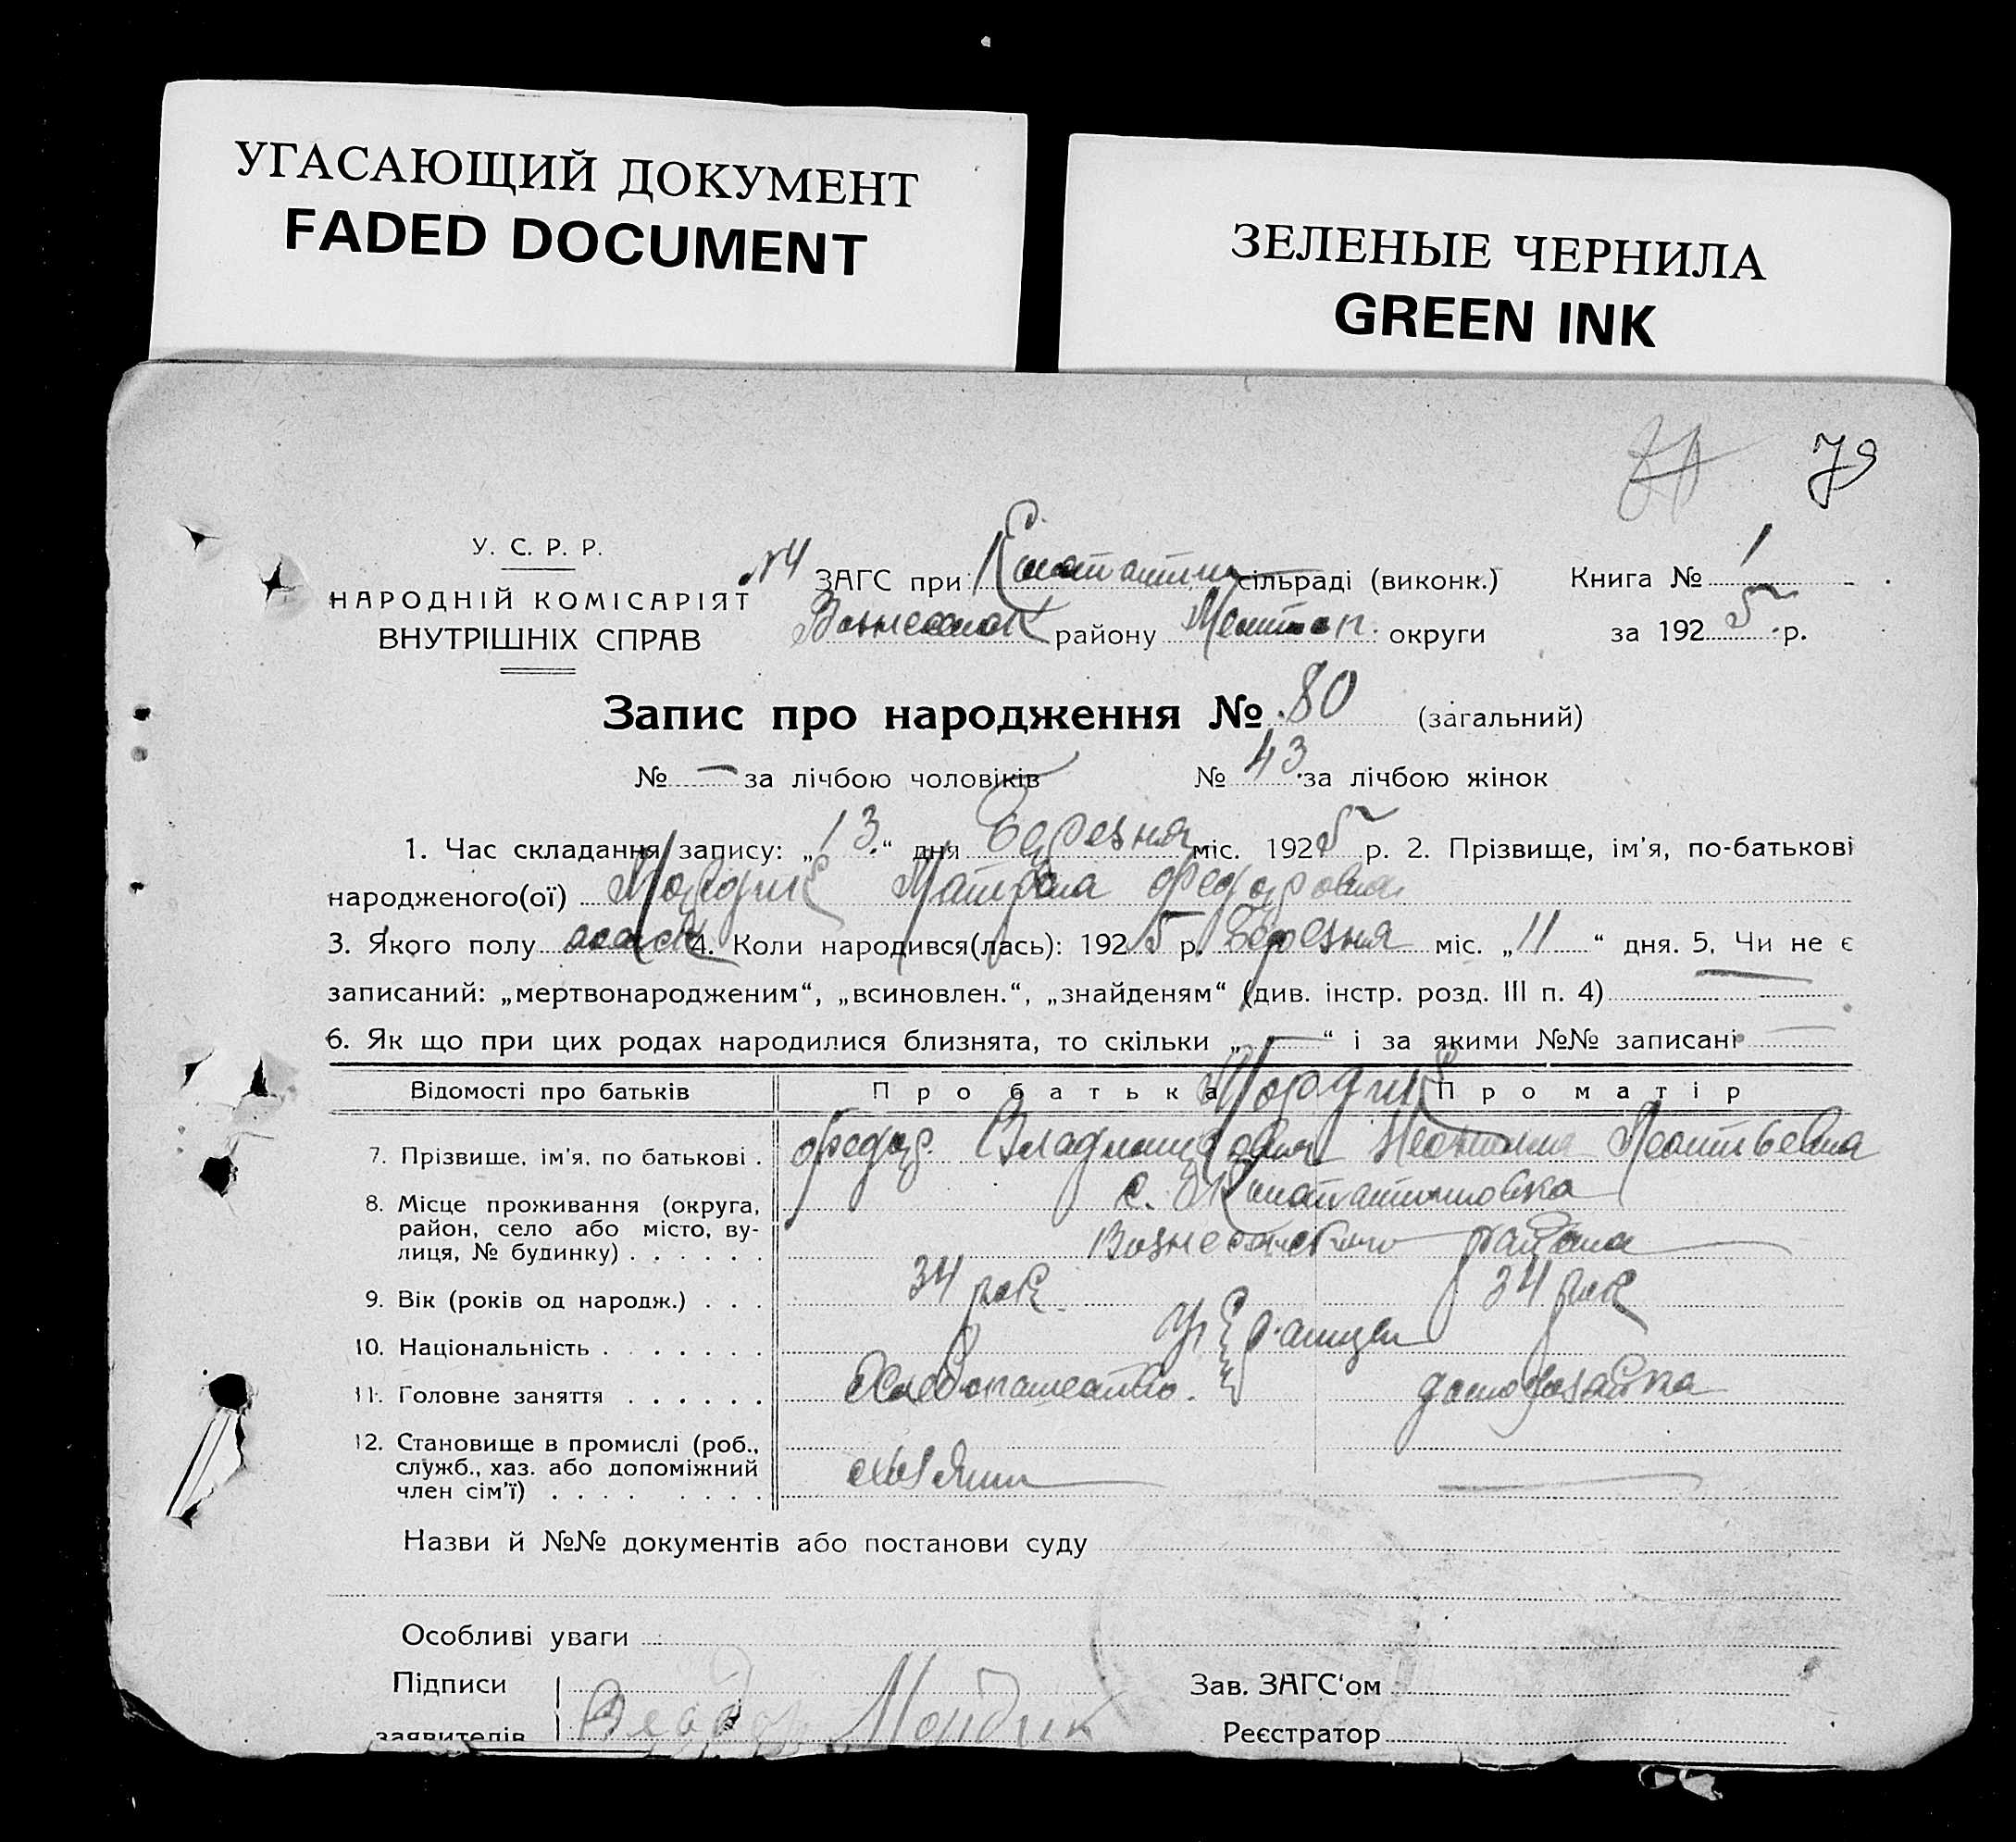 УГАСАЮЩИЙ ДОКУМЕНТ
FADED DOCUMENT
ЗЕЛЕНЫЕ ЧЕРНИЛА
GREEN INK
79
У. С. Р. Р.
НАРОДНІЙ КОМІСАРІЯТ
ВНУТРІШНІХ СПРАВ
ЗАГС при Константин сільраді (виконк.) Книга № 1
району округи за 1925 р.
Запис про народження № 80 (загальний)
№ — за лічбою чоловіків № 43 за лічбою жінок
1. Час складання запису: „13“ дня Березня міс. 1925 р. 2. Прізвище, ім'я, по-батькові
народженого(ої) Мордик Матрона Федоровна
3. Якого полу 4. Коли народився(лась): 1925 р. Березня міс. „11“ дня. 5. Чи не є
записаний: „мертвонародженим“, „всиновлен.“, „знайденям“ (див. інстр. розд. III п. 4)
6. Як що при цих родах народилися близнята, то скільки „—“ і за якими №№ записані —
Відомості про батьків Про батька Мордик Про матір
7. Прізвище, ім'я, по батькові . Федор Владимирович Леонтьевна
8. Місце проживання (округа, район, село або місто, вулиця, № будинку) . . . . . . с. Константиновка
Вознесенского района
9. Вік (років од народж.) . . . 34 рок 34 рок
10. Національність . . . . . . .
11. Головне заняття . . . . . . Хлебопашество.
12. Становище в промислі (роб., служб., хаз. або допоміжний член сім'ї) . . . . . . . . —
Назви й №№ документів або постанови суду
Особливі уваги
Підписи Зав. ЗАГС'ом
заявителів Мордик Реєстратор